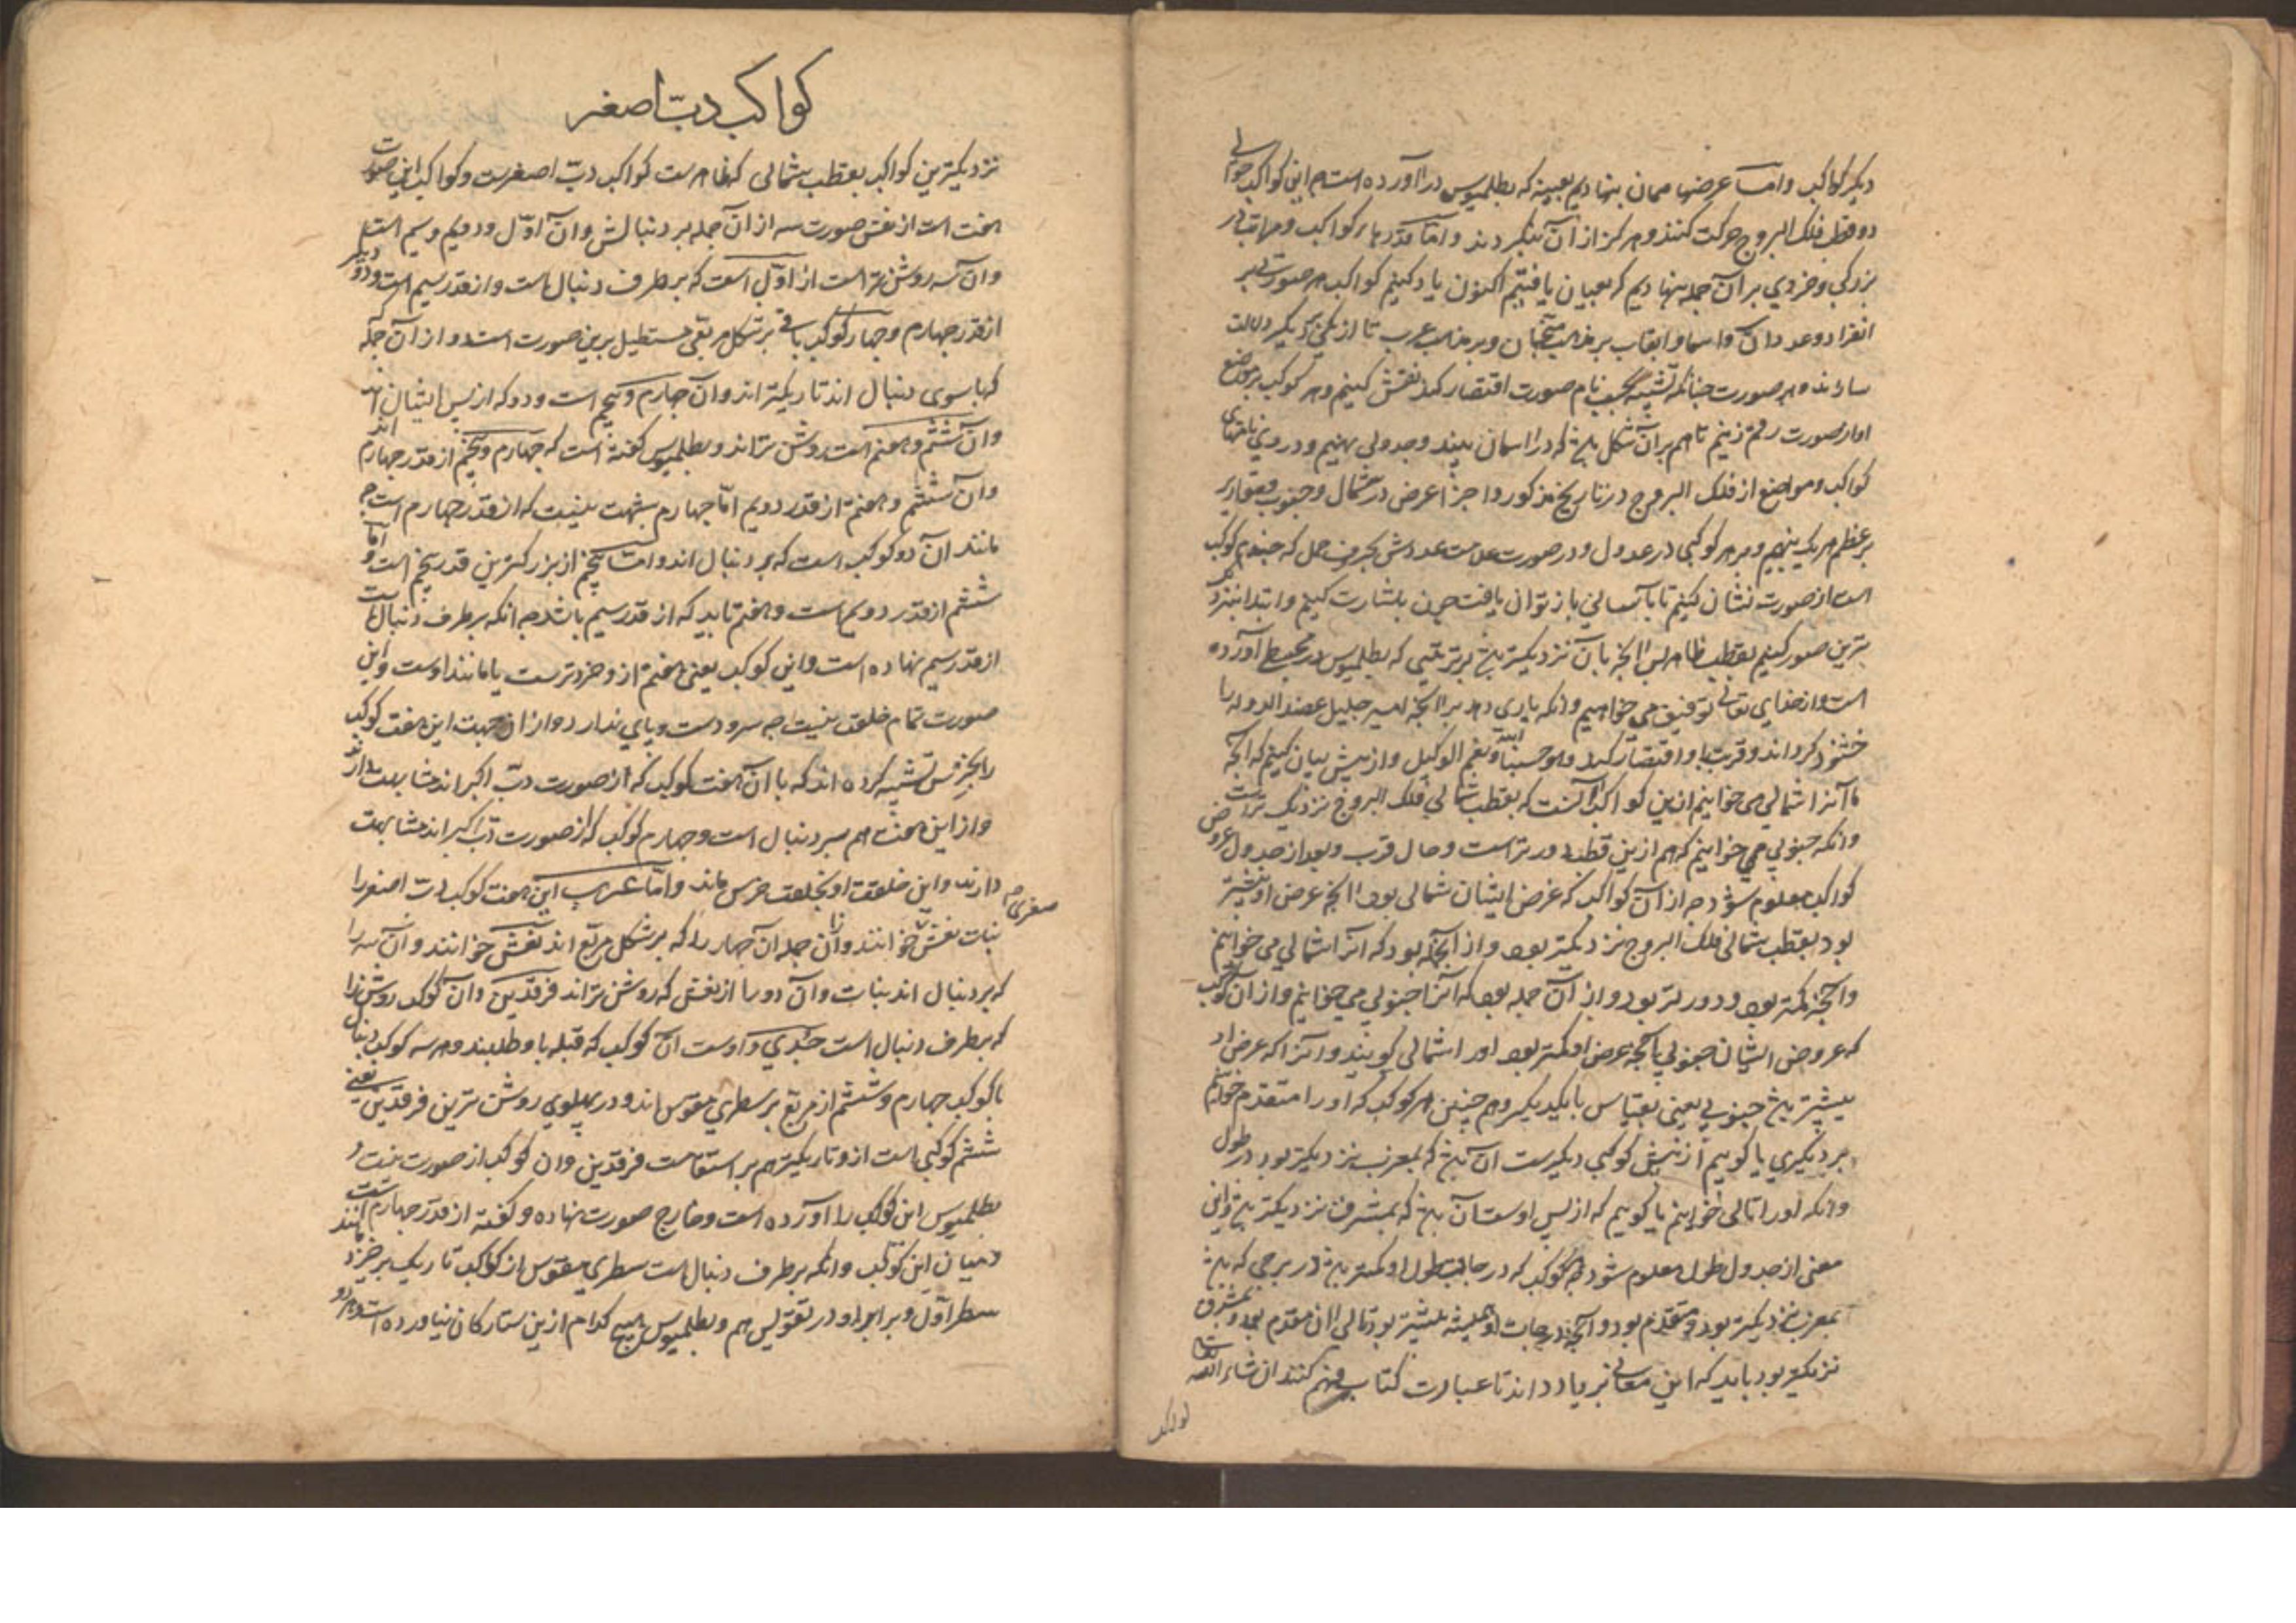 دیگر کواکب واما عرضها همان بنهادیم بعینه که بطلمیوس در آورده است این کواکب حوالی
دو قطب فلک البروج حرکت کنند و هرگز از آن بنگردند واما قدرهاء کواکب و مراتب در
بزرگی و خردی بر آن جمله بنهادیم که بعیان یافتیم اکنون یاد کنیم کواکب هر صورت بر
انفراد و عدد آن و اسما و القاب بر مذهب منجمان و بر مذهب عرب تا از یکی بدیگر دلالت
سازند و هر صورت چنانکه نام صورت اقتضار کند نقش کنیم و هر کوکب بر موضع
او از صورت رقم زنیم تا هم بر آن شکل که در آسمان بینند و جدولی بنهیم و در وی نامهای
کواکب و مواضع از فلک البروج در تاریخ مذکور و اجزا عرض در شمال و جنوب و مقادیر
عظم هر یک بنهیم و بر هر کوکبی در جدول و در صورت علامت عددش بحروف جمل که چندم کوکب
است از صورت نشان کنیم تا بآسانی باز توان یافت چون بدو اشارت کنیم و ابتدا بنزدیک
ترین صور کنیم بقطب ظاهر پس آنچه بآن نزدیکتر بر ترتیبی که بطلمیوس در مجسطی آورده
است و از خدای تعالی توفیق می خواهیم و آنکه یاری دهد بر آنچه امیر جلیل عضد الدوله را
خشنود گرداند و قربت باو اقتضار کند وهو حسبنا الله و نعم الوکیل و از پیش بیان کنیم که آنچه
ما آنرا شمالی می خوانیم ازین کواکب آنست که بقطب شمالی فلک البروج نزدیک تر است
وآنکه جنوبی می خوانیم که هم ازین قطب دورتر است و حال قرب و بعد از جدول عروض
کواکب معلوم شود چه از آن کواکب که عرض ایشان شمالی بود آنچه عرض او بیشتر
بود بقطب شمالی فلک البروج نزدیکتر بود و از آنجمله بود که آنرا شمالی می خوانیم
وآنچه کمتر بود دورتر بود و از آن جمله بود که آنرا جنوبی می خوانیم و از آن کوکب
که عروض ایشان جنوبی آنچه عرض او کمتر بود او را شمالی گویند و آنرا که عرض او
بیشتر جنوبی یعنی بقیاس با یکدیگر و هم چنین هر کوکب که او را متقدم خوانیم
بر دیگری یا گوییم از پیش کوکبی دیگرست آن که بمغرب نزدیکتر بود در طول
وآنکه او را تالی خوانیم یا گوییم که از پس اوست آن که بمشرق نزدیکتر و این
معنی از جدول طول معلوم شود چه کوکب که درجات طول او کمتر در برجی که
بمغرب نزدیکتر بود و متقدم بود و آنچه درجات او بیشتر بود تالی آن مقدم بود و بمشرق
نزدیکتر بود باید که این معانی بر یاد دارند تا عبارت کتاب فهم کنند ان شاء الله تعالی
کواکب
کواکب دب اصغر
نزدیکترین کواکب بقطب شمالی که ظاهرست کواکب دب اصغرست و کواکب این صورت
هفت است از نفس صورت سه از آن جمله بر دنبالش و آن اول و دویم و سیم است
وآن سه روشن تر است از اول است که بر طرف دنبال است و از قدر سیم است و دو دیگر
از قدر چهارم و چهار کوکب باقی بر شکل مربعی مستطیل برین صورت است و از آن جمله
که با سوی دنبال اند تاریکتر اند و آن چهارم و پنجم است و دو که از پس ایشان اند
وآن ششم و هفتم است روشن تر اند و بطلمیوس گفته است که چهارم و پنجم از قدر چهارم اند
وآن ششم و هفتم از قدر دویم اما چهارم بشبهت نیست که از قدر چهارم است چه
مانند آن دو کوکب است که بر دنبال اند و اما پنجم از بزرگترین قدر پنجم است و اما
ششم از قدر دویم است و هفتم باید که از قدر سیم باشد چه آنکه بر طرف دنبال است
از قدر سیم نهاده است و این کوکب یعنی هفتم از و خردترست یا مانند اوست و این
صورت تمام خلقت نیست چه سر و دست و پای ندارد و از آن جهت این هفت کوکب
را بخرس تشبیه کرده اند که با آن هفت کوکب که از صورت دب اکبر اند مشابهت دارند
واز این هفت هم سه بر دنبال است و چهارم کوکب که از صورت دب اکبر اند مشابهت
دارند و این خلقت او بخلقت خرس ماند و اما عرب این هفت کوکب دب اصغر را
بنات نعش صغری خوانند و از آن جمله آن چهار را که بر شکل مربع اند نعش خوانند و آن سه را
که بر دنبال اند بنات و آن دو را از نعش که روشن تر اند فرقدین و آن کوکب روشن را
که بر طرف دنبال است جدی و اوست آن کوکب که قبله باو طلبند و هر سه کوکب دنبال
با کوکب چهارم و ششم از مربع بر سطری مقوس اند و در پهلوی روشن ترین فرقدین یعنی
ششم کوکبی است از و تاریکتر هم بر استقامت فرقدین و آن کوکب از صورت نیست و
بطلمیوس این کوکب را آورده است و خارج صورت نهاده و گفته از قدر چهارم است
و میان این کوکب و آنکه بر طرف دنبال است سطری مقوس از کواکب تاریک بر خیزد مانند
سطر اول و برابر او در تقویس هم و بطلمیوس هیچ کدام ازین ستارگان نیاورده است و هر دو